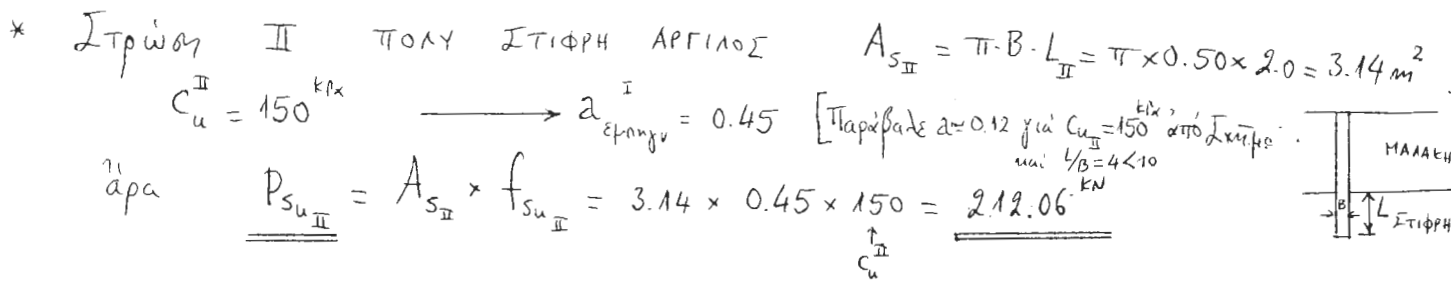 * Στρώση II ΠΟΛΥ ΣΤΙΦΡΗ ΑΡΓΙΛΟΣ A_{s_{II}} = π·B·L_{II} = π×0.50×2.0 = 3.14 m²
C_u^{II} = 150 kPa → a^{I}_{εμπηγν} = 0.45 [Παράβαλε a≈0.12 γιά C_{u_{II}}=150 kPa από
καί L/B=4<10
ἄρα P_{su_{II}} = A_{s_{II}} × f_{su_{II}} = 3.14 × 0.45 × 150 = 212.06 KN
↑
C_u^{II}
ΜΑΛΑΚΗ
B L ΣΤΙΦΡΗ